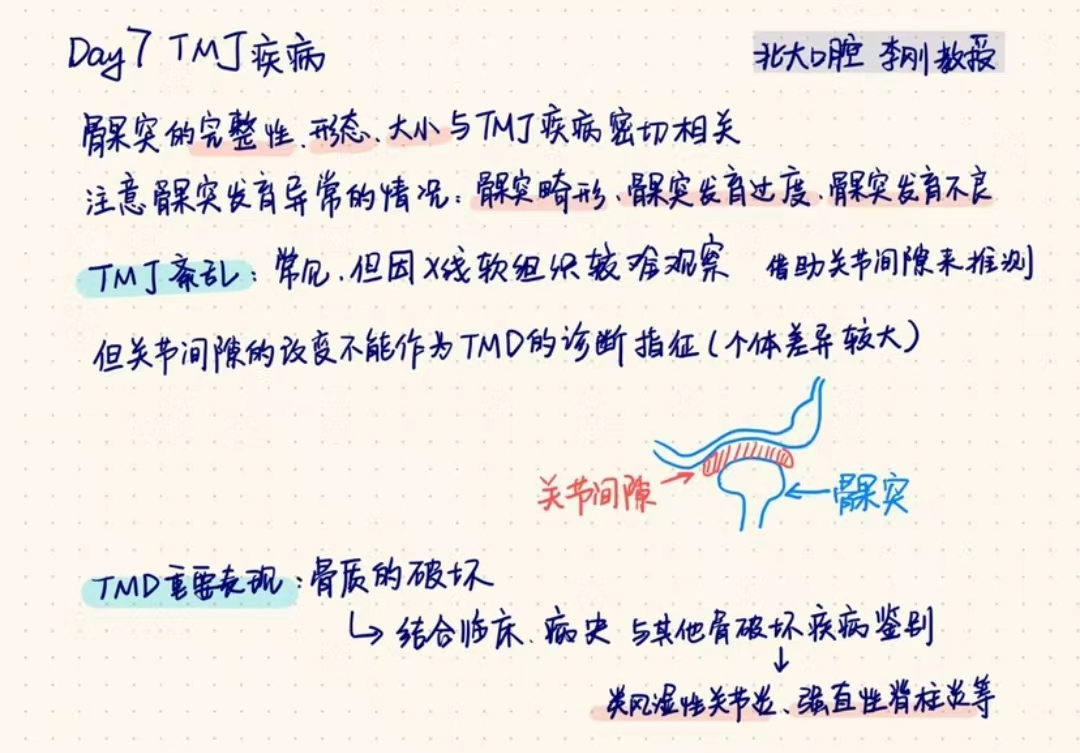 Day7 TMJ疾病
北大口腔 李刚教授
髁突的完整性、形态、大小与TMJ疾病密切相关
注意髁突发育异常的情况：髁突畸形、髁突发育过度、髁突发育不良
TMJ紊乱：常见，但因X线软组织较难观察 借助关节间隙来推测
但关节间隙的改变不能作为TMD的诊断指征（个体差异较大）
关节间隙
髁突
TMD主要表现：骨质的破坏
↳ 结合临床、病史 与其他骨破坏疾病鉴别
↓
类风湿性关节炎、强直性脊柱炎等